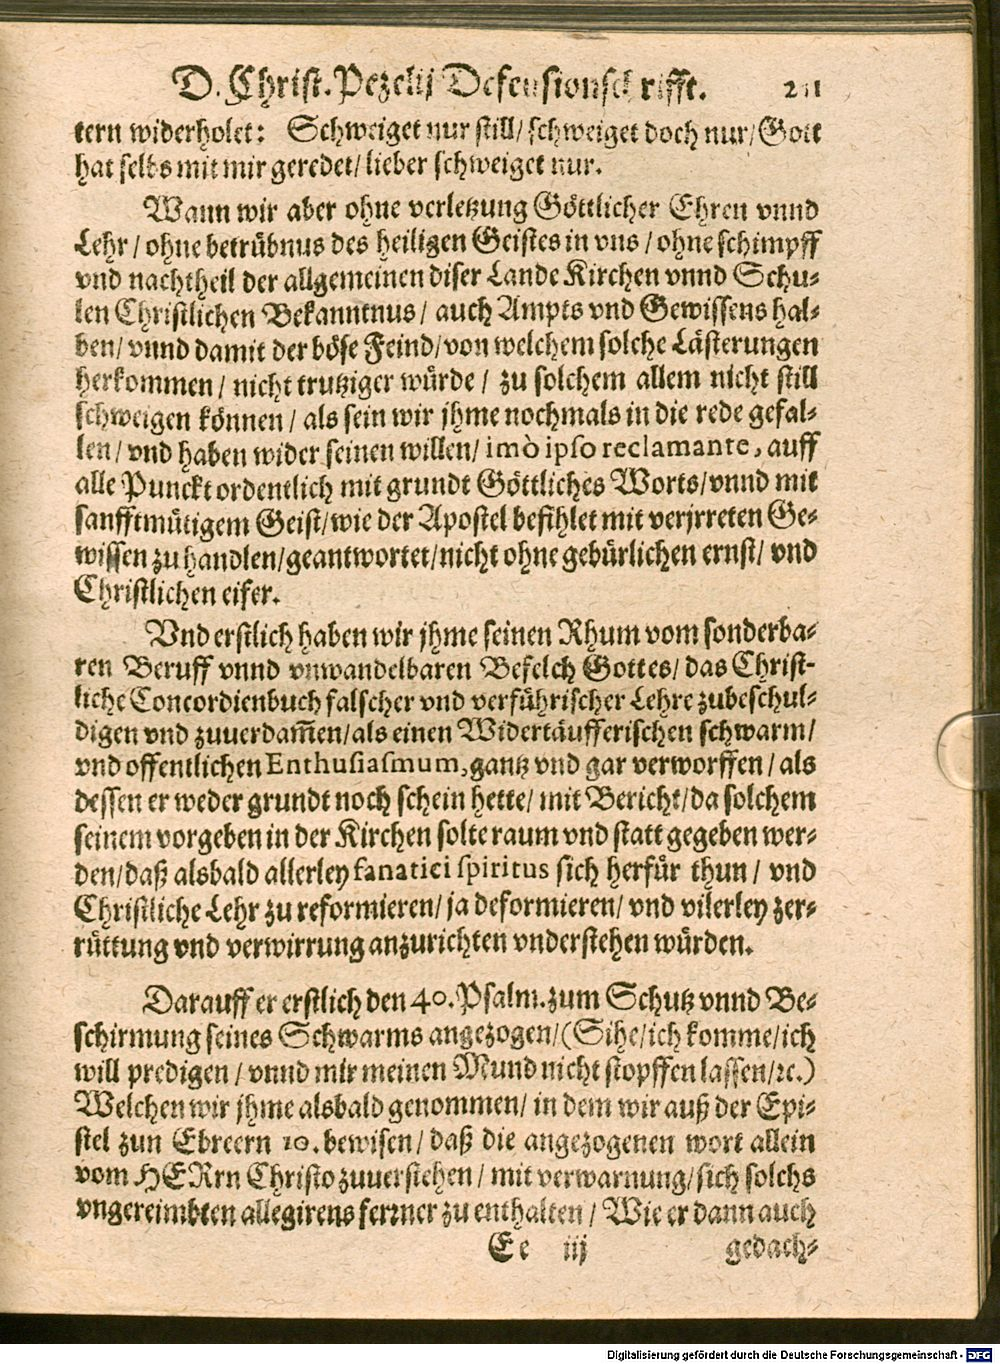 D. Christ. Pezelij Defensionschrifft. 211
tern widerholet: Schweiget nur still/ schweiget doch nur/ Gott
hat selbs mit mir geredet/ lieber schweiget nur.
Wann wir aber ohne verletzung Göttlicher Ehren vnnd
Lehr / ohne betrübnus des heiligen Geistes in vns / ohne schimpff
vnd nachtheil der allgemeinen diser Lande Kirchen vnnd Schu-
len Christlichen Bekanntnus / auch Ampts vnd Gewissens hal-
ben/ vnnd damit der böse Feind/ von welchem solche Lästerungen
herkommen / nicht trutziger würde / zu solchem allem nicht still
schweigen können / als sein wir jhme nochmals in die rede gefal-
len / vnd haben wider seinen willen/ imò ipso reclamante, auff
alle Punckt ordentlich mit grundt Göttliches Worts/ vnnd mit
sanfftmütigem Geist/ wie der Apostel befihlet mit verjrreten Ge-
wissen zu handlen/ geantwortet/ nicht ohne gebürlichen ernst/ vnd
Christlichen eifer.
Vnd erstlich haben wir jhme seinen Rhum vom sonderba-
ren Beruff vnnd vnwandelbaren Befelch Gottes/ das Christ-
liche Concordienbuch falscher vnd verführischer Lehre zubeschul-
digen vnd zuuerdam̃en/ als einen Widertäufferischen schwarm/
vnd offentlichen Enthusiasmum, gantz vnd gar verworffen / als
dessen er weder grundt noch schein hette/ mit Bericht/ da solchem
seinem vorgeben in der Kirchen solte raum vnd statt gegeben wer-
den/ daß alsbald allerley fanatici spiritus sich herfür thun / vnd
Christliche Lehr zu reformieren/ ja deformieren/ vnd vilerley zer-
rüttung vnd verwirrung anzurichten vnderstehen würden.
Darauff er erstlich den 40. Psalm. zum Schutz vnnd Be-
schirmung seines Schwarms angezogen/ (Sihe/ ich komme/ ich
will predigen / vnnd mir meinen Mund nicht stopffen lassen/ ꝛc.)
Welchen wir jhme alsbald genommen/ in dem wir auß der Epi-
stel zun Ebreern 10. bewisen/ daß die angezogenen wort allein
vom HERrn Christo zuuerstehen / mit verwarnung/ sich solchs
vngereimbten allegirens ferrner zu enthalten / Wie er dann auch
Ee iij gedach-
Digitalisierung gefördert durch die Deutsche Forschungsgemeinschaft - DFG